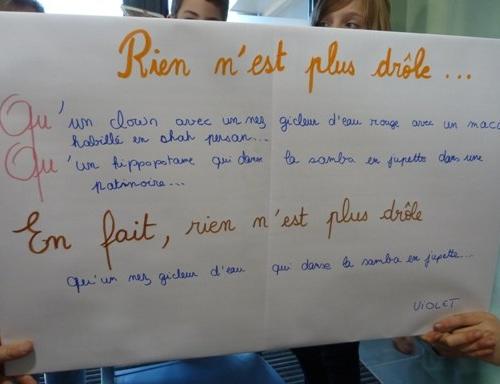 Rien n'est plus drôle...
Qu'un clown avec un nez gicleur d'eau rouge avec un
habillé en shah persan...
Qu'un hippopotame qui danse la samba en jupette dans une
patinoire...
En fait, rien n'est plus drôle
qu'un nez gicleur d'eau qui danse la samba en jupette...
VIOLET